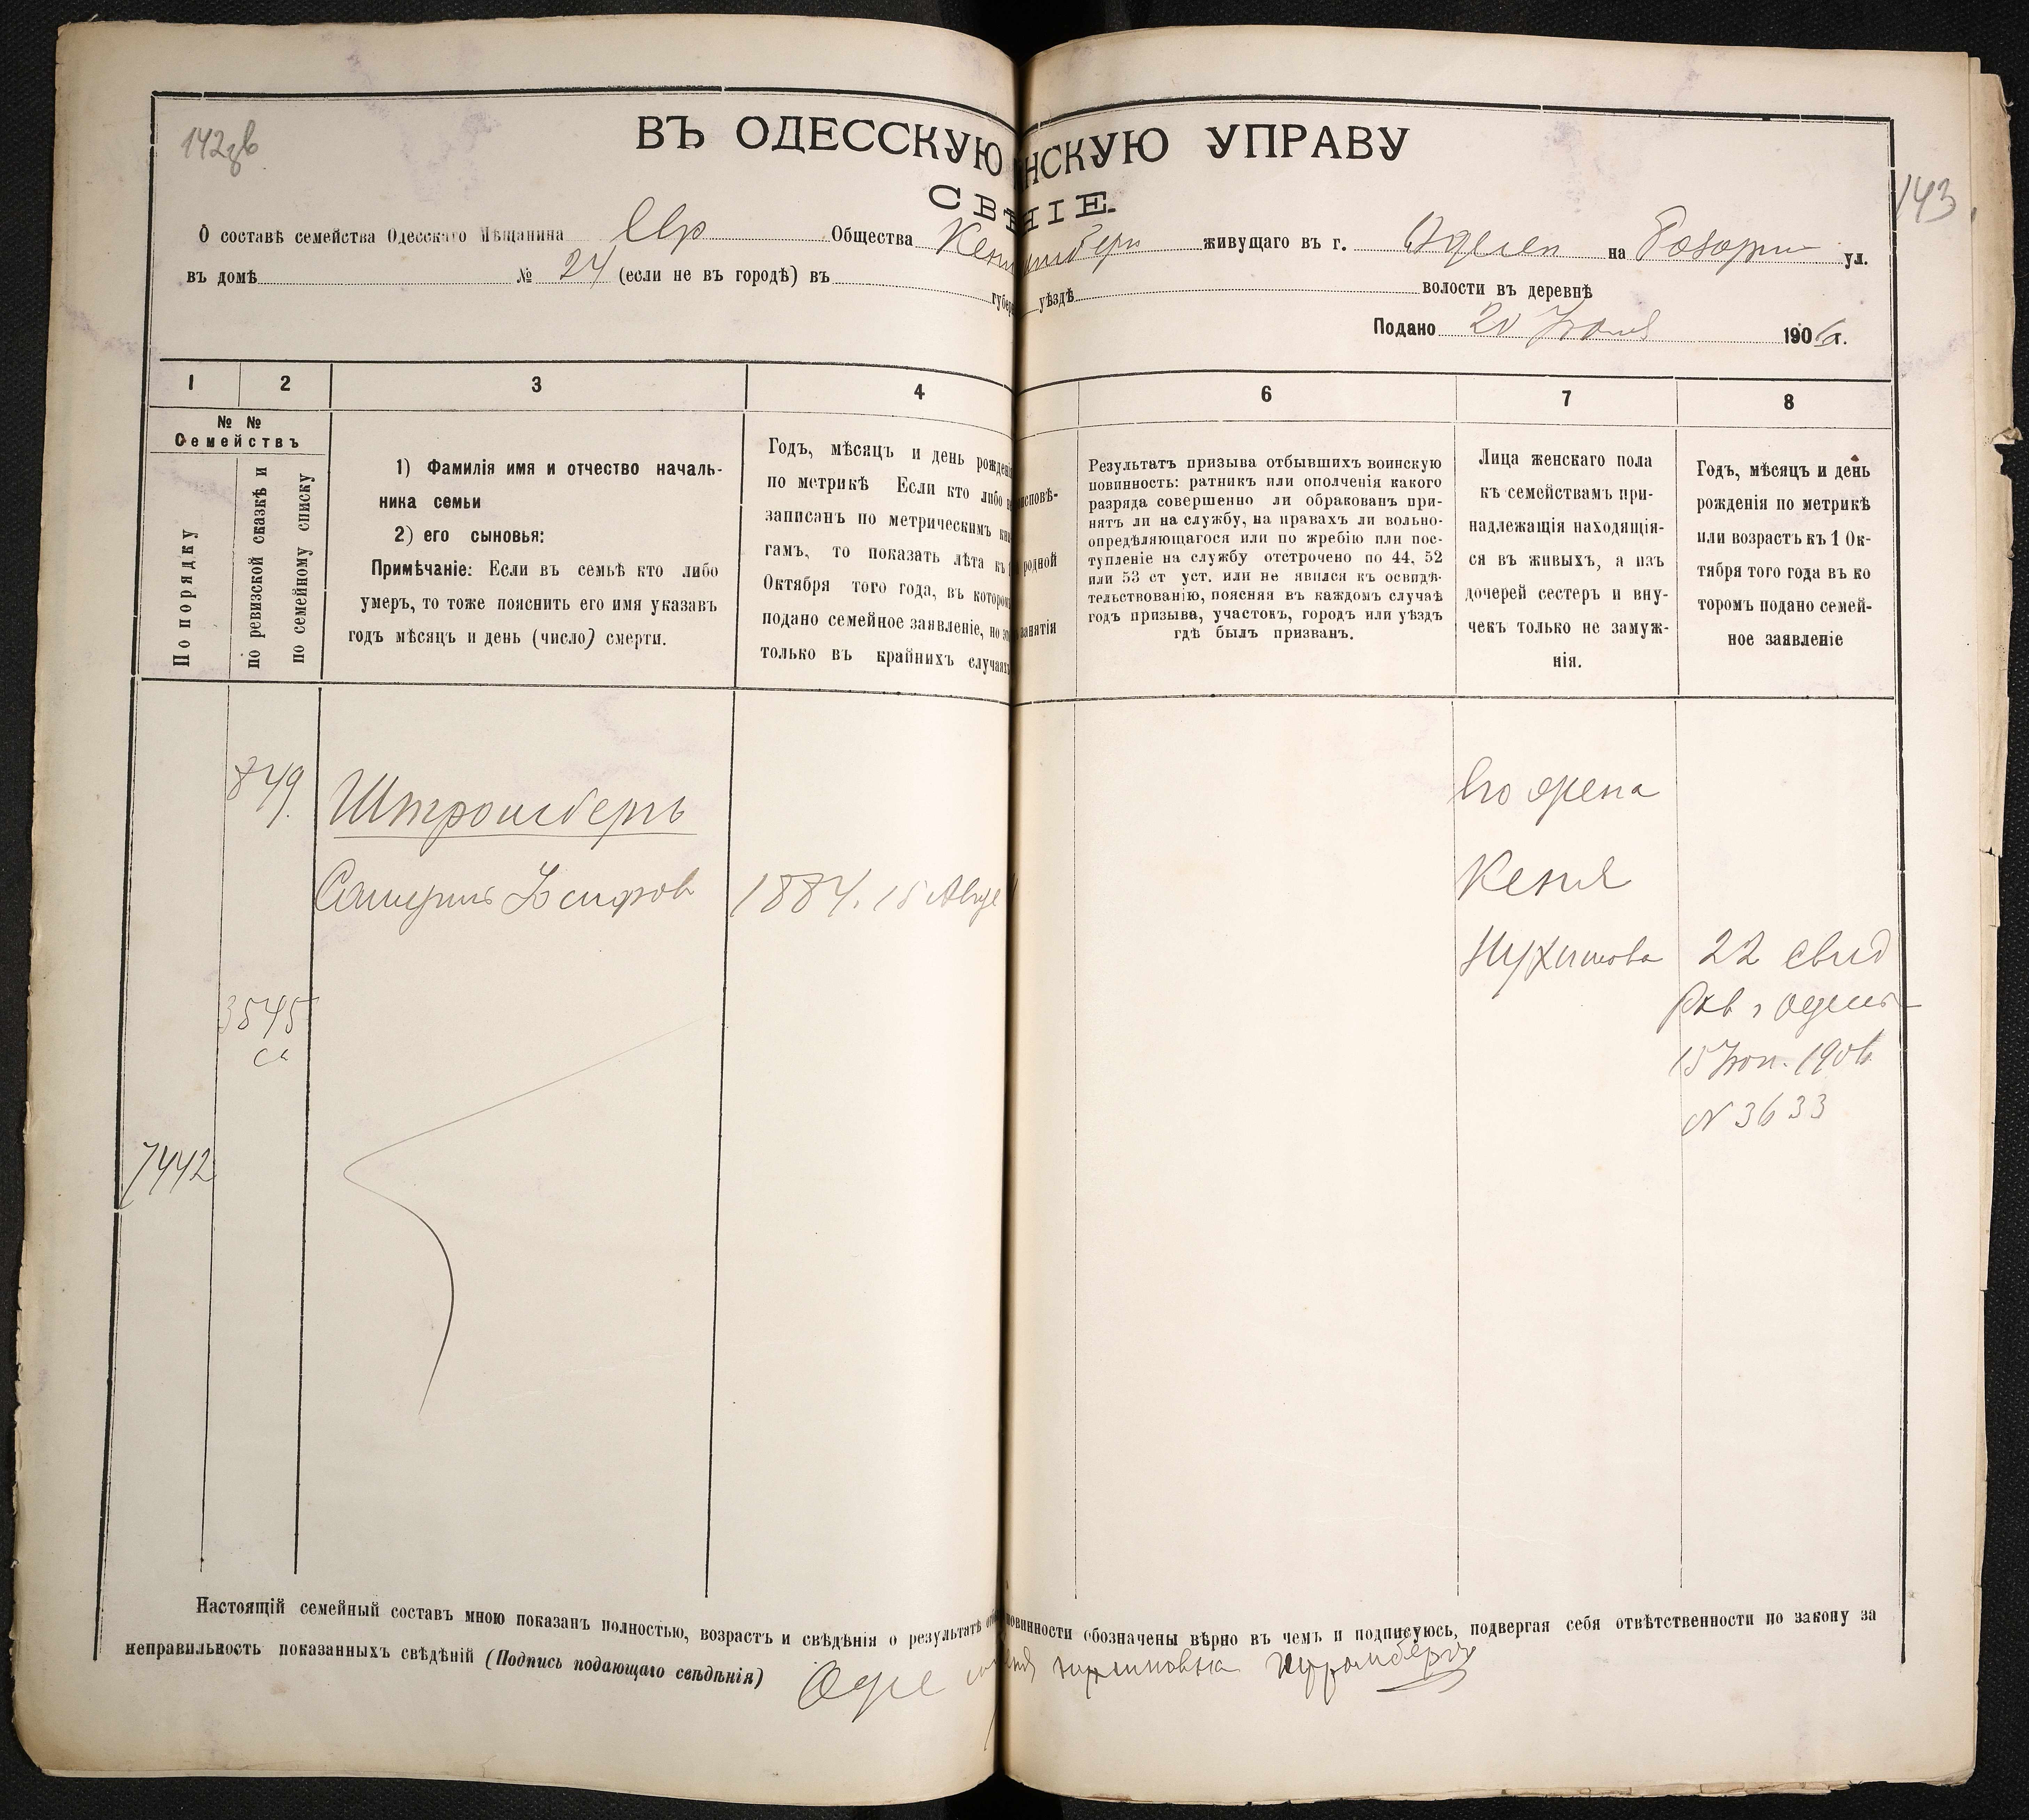 143
ВЪ ОДЕССКУЮ НСКУЮ УПРАВУ
СВѢ НІЕ.
О составѣ семейства Одесскаго Мѣщанина Евр Общества живущаго въ г. на ул.
въ домѣ № 24 (если не въ городѣ) въ губер уѣздѣ волости въ деревнѣ
Подано 20 Іюня 1906 г.
1 2 3 4 6 7 8
№ №
Семействъ
По порядку
по ревизской сказкѣ и
по семейному списку
1) Фамилія имя и отчество началь-
ника семьи
2) его сыновья:
Примѣчаніе: Если въ семьѣ кто либо
умеръ, то тоже пояснить его имя указавъ
годъ мѣсяцъ и день (число) смерти.
Годъ, мѣсяцъ и день рожденія
по метрикѣ Если кто либо не
записанъ по метрическимъ кни
гамъ, то показать лѣта къ 1
Октября того года, въ котором
подано семейное заявленіе, но это
только въ крайнихъ случаяхъ
исповѣ-
родной
занятія
Результатъ призыва отбывшихъ воинскую
повинность: ратникъ или ополченія какого
разряда совершенно ли обракованъ при-
нятъ ли на службу, на правахъ ли вольно-
опредѣляющагося или по жребію или пос-
тупленіе на службу отстрочено по 44, 52
или 53 ст уст. или не явился къ освидѣ-
тельствованію, поясняя въ каждомъ случаѣ
годъ призыва, участокъ, городъ или уѣздъ
гдѣ былъ призванъ.
Лица женскаго пола
къ семействамъ при-
надлежащія находящія-
ся въ живыхъ, а изъ
дочерей сестеръ и вну-
чекъ только не замуж-
нія.
Годъ, мѣсяцъ и день
рожденія по метрикѣ
или возрастъ къ 1 Ок-
тября того года въ ко
торомъ подано семей-
ное заявленіе
849
Штромбергъ
Его жена
1884. 15 Авгус
Кеня
Нухимова 22 свид
3545
15 Іюн. 1906
№ 3633
7442
Настоящій семейный составъ мною показанъ полностью, возрастъ и свѣдѣнія о результатѣ повинности обозначены вѣрно въ чемъ и подписуюсь, подвергая себя отвѣтственности по закону за
неправильность показанныхъ свѣдѣній (Подпись подающаго свѣдѣнія)